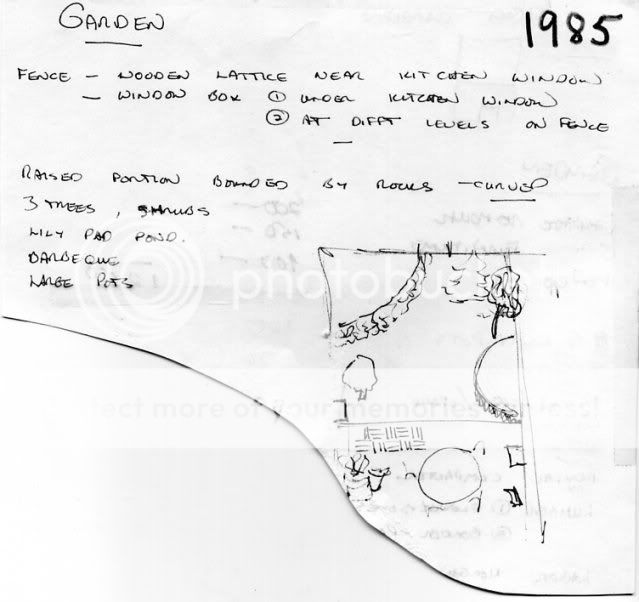 GARDEN
1985
FENCE - WOODEN LATTICE NEAR KITCHEN WINDOW
- WINDOW BOX ① UNDER KITCHEN WINDOW
② AT DIFFT LEVELS ON FENCE
-
RAISED PORTION BOUNDED BY ROCKS - CURVED
3 TREES, SHRUBS
LILY PAD POND.
BARBEQUE
LARGE POTS
photobuc
ect more of your memories for less!